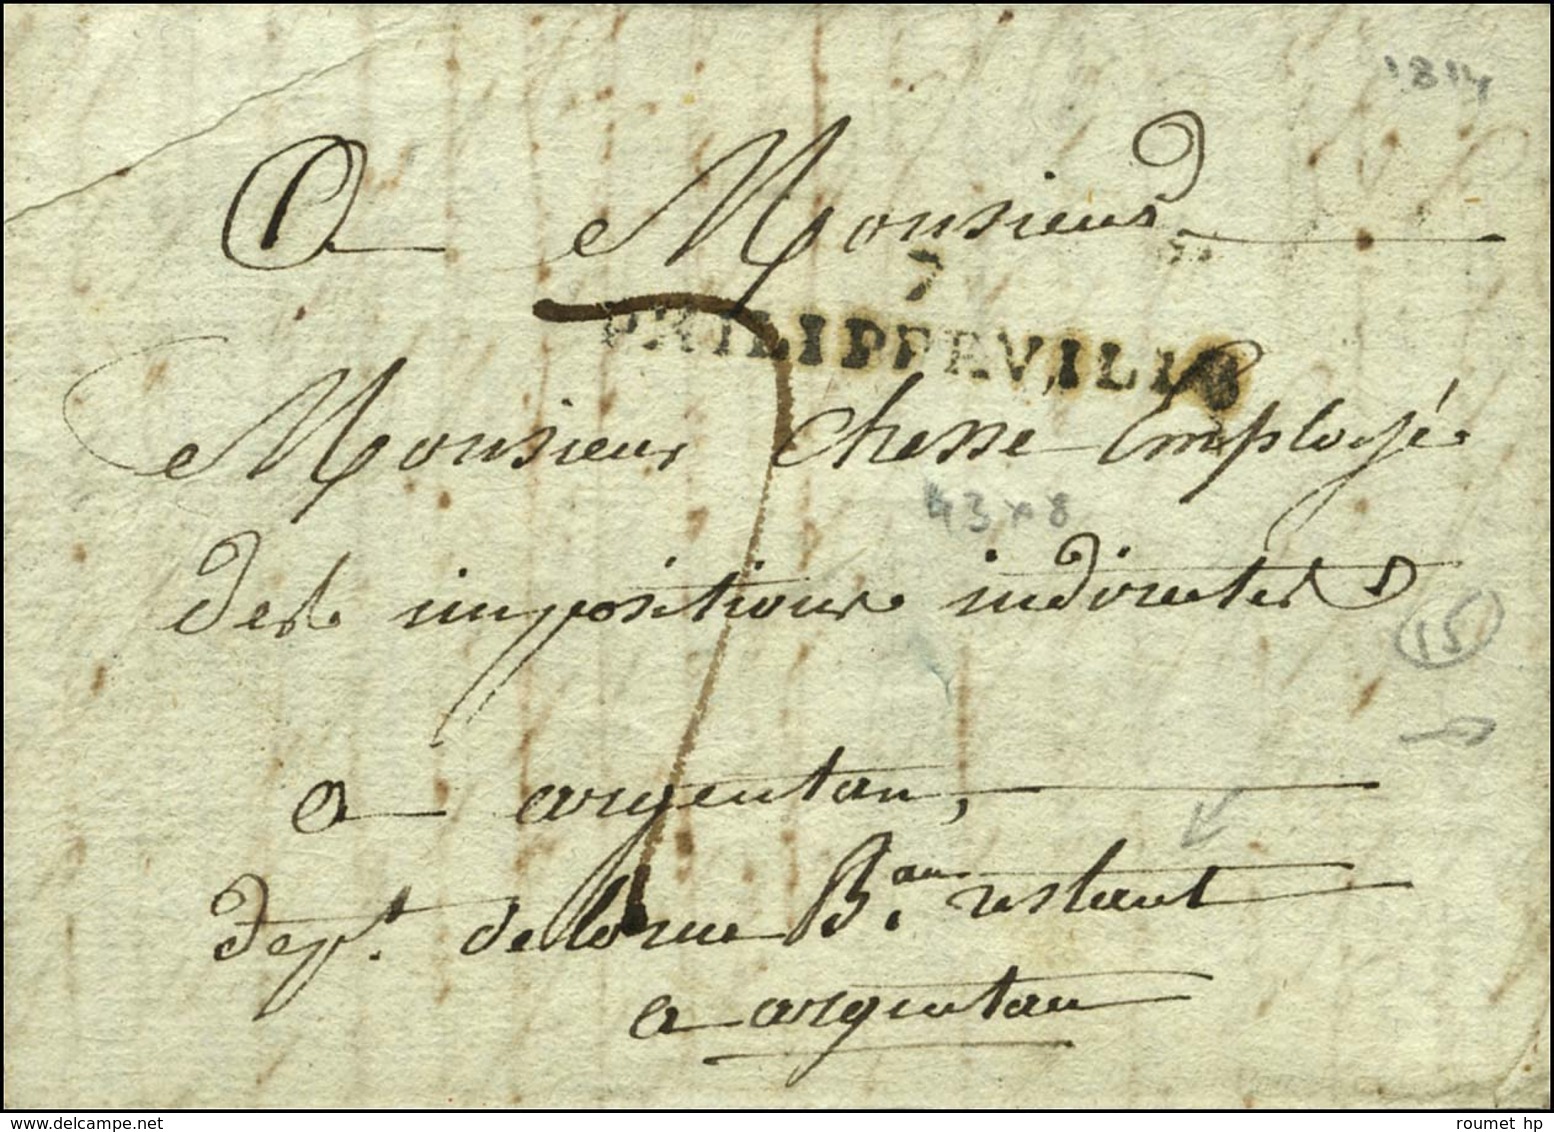 1814
A Monsieur
7
PHILIPPEVILLE
Monsieur Chesne Employé
des impositions indirectes
43x8
15
a argentan,
dept. de lorne Bau. restant
a argentan
delcampe.net
roumet hp